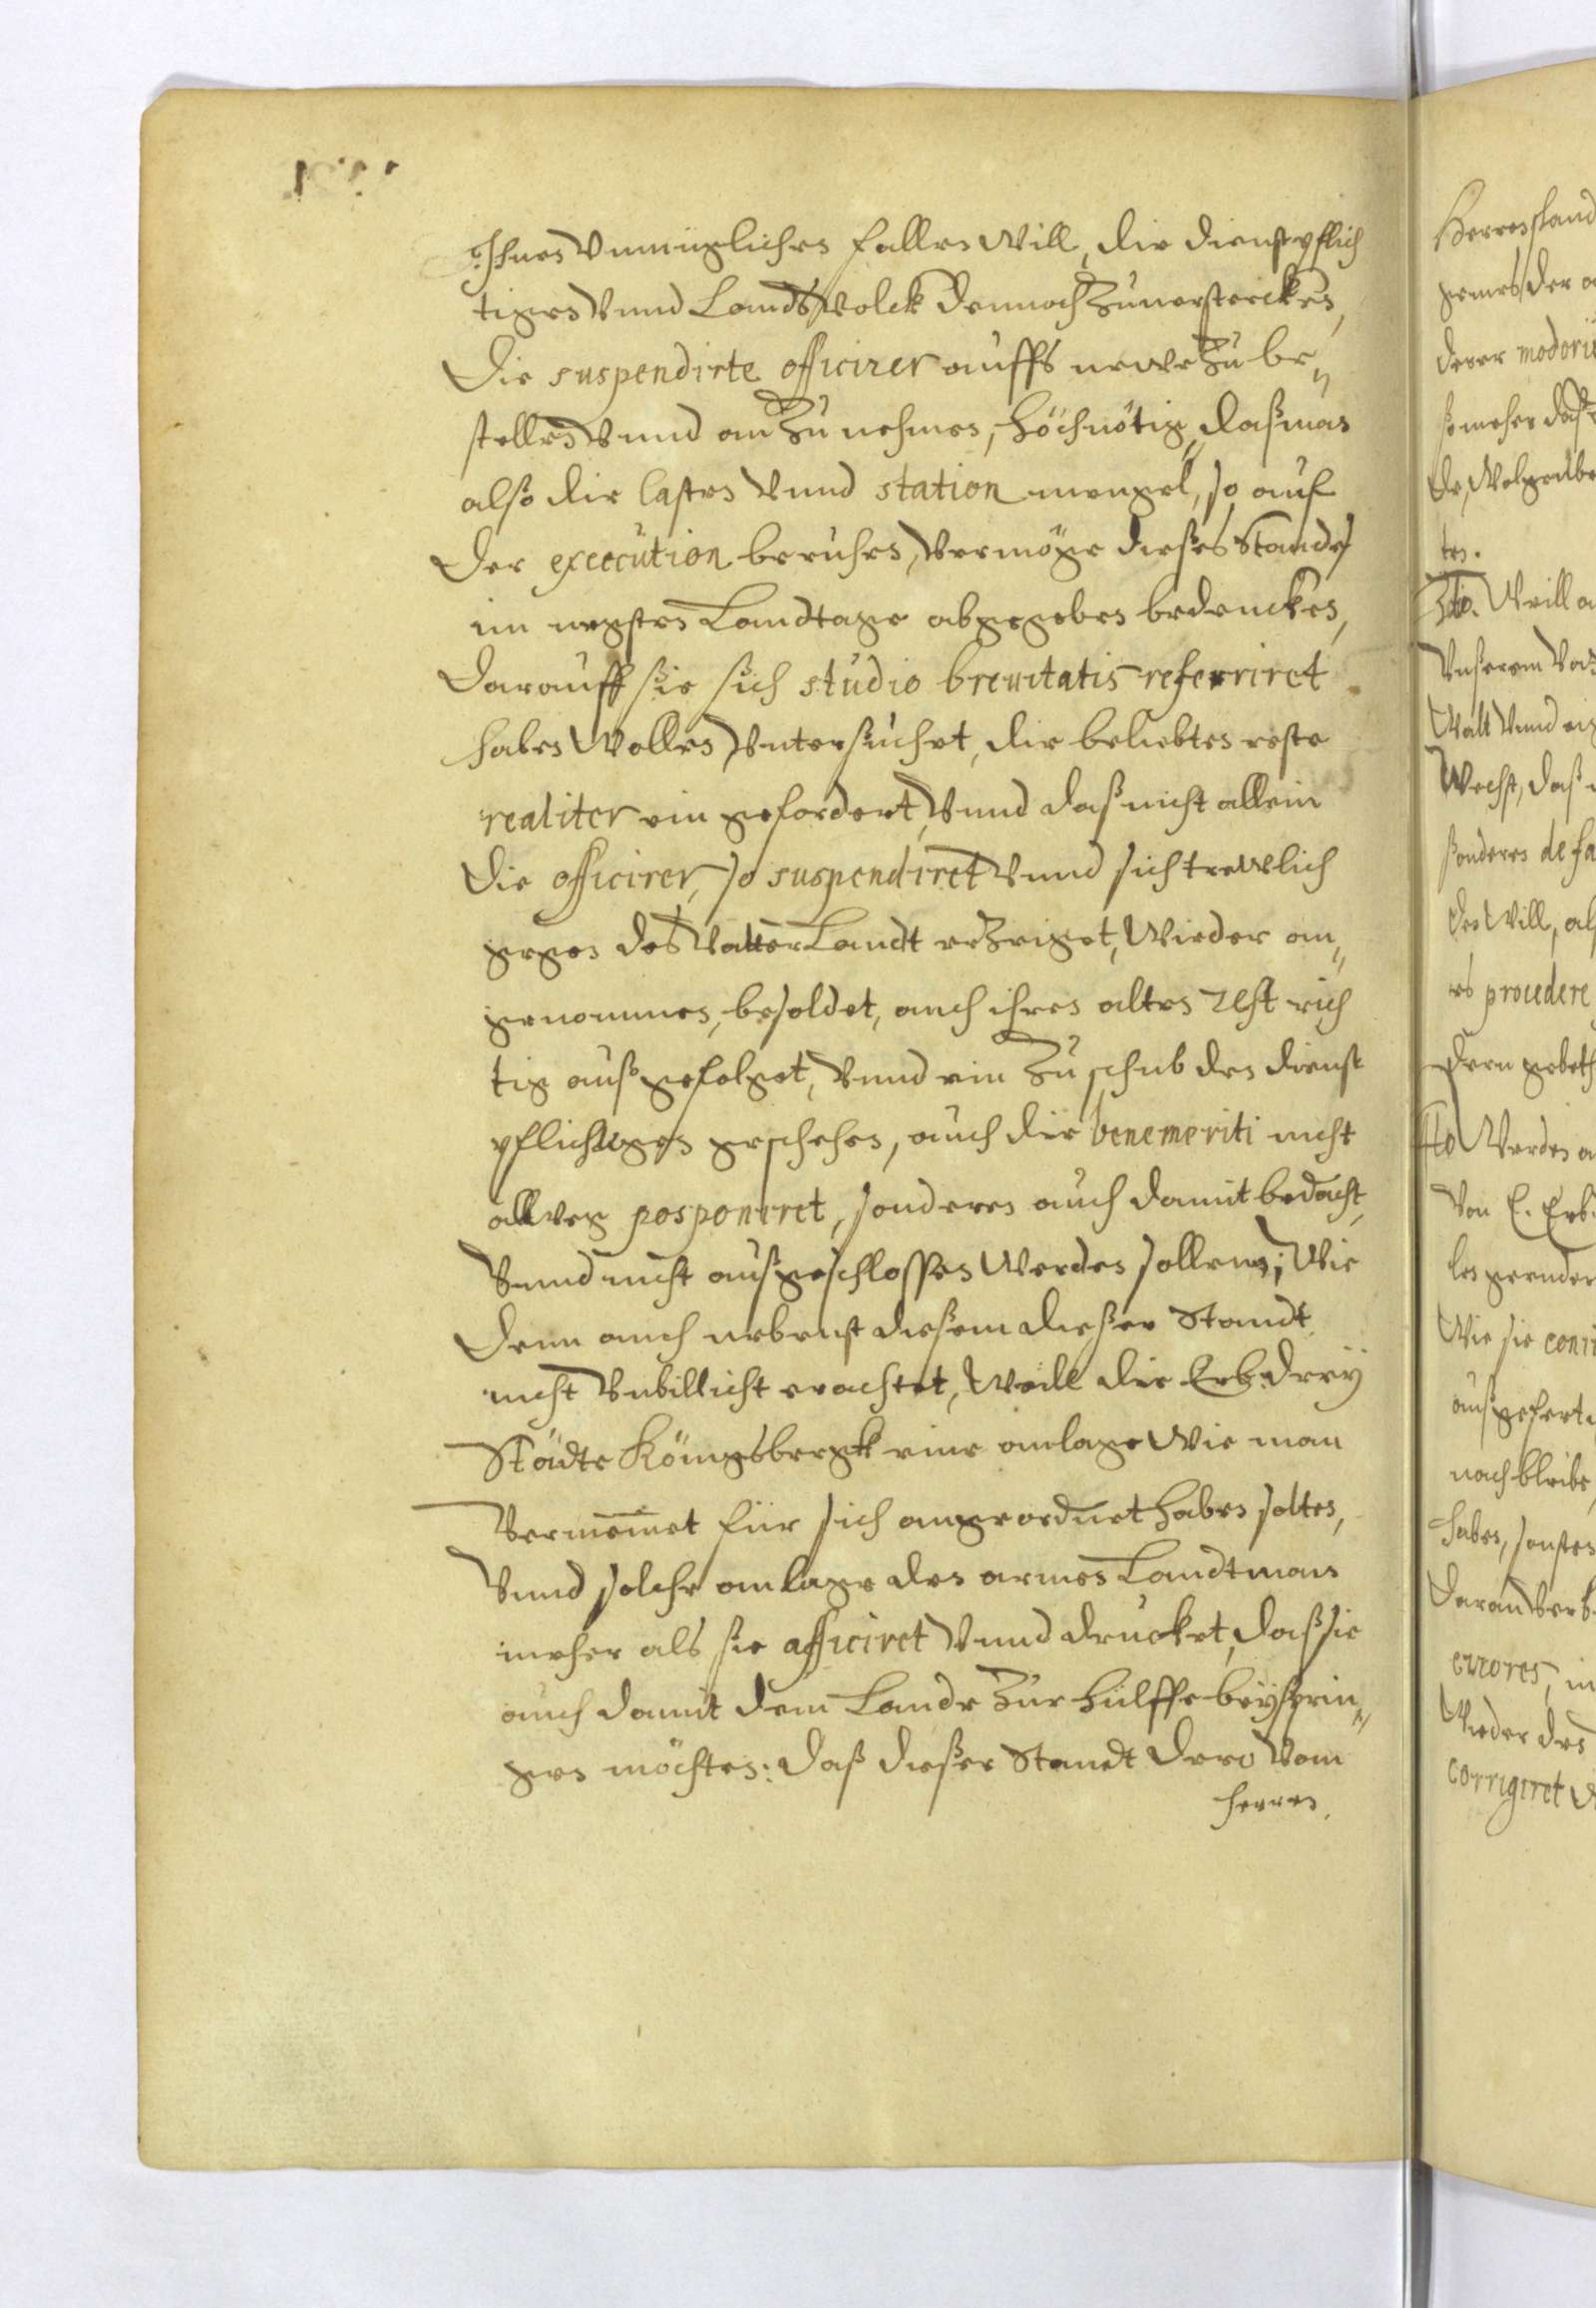 Ihnen Vnmüglichen fallen Will, die dienstpflich
tigen Vnnd Landt Volck dennoch Zuuerstercken,
Die suspendirte officirer auffs newe Zu be„
stellen Vnnd an Zu nehmen, höchnötig, daß man
also die lasten Vnnd station mengel, so auf
Der execution beruhen, Vermöge dießes Standes
im negsten Landtage abgegeben bedencken,
Darauff sie sich studio breuitatis referriret
haben Wollen, Vntersuchet, die beliebten reste
realiter ein gefordert, Vnnd daß nicht allein
Die officirer, so suspendiret Vnnd sich trewlich
gegen das Vatter Landt erzeiget, Wieder an„
genommen, besoldet, auch ihren alten rest rich
tig außgefolget, Vnnd ein Zu schub den dienst
pflichtigen geschehen, auch die benemeriti nicht
allweg posponiret, sonderen auch damit bedacht,
Vnnd nicht außgeschlossen Werden sollenn; Wie
Denn auch nebenst diesem dießer Standt
nicht Vnbillicht erachtet, Weill die Erb. drey
Städte Königsbergk eine anlage Wie man
Vermeinet für sich angeordnet haben solten,
Vnnd solche anlage den armen Landtman
meher als sie afficiret Vnnd drucket, daß sie
auch damit dem Lande Zur hülffe beyspin„
gen möchten: Daß dießer Standt dero Vom
herren
Herrenstand
gemes der
derer
so meher daß
de, Wolgeübe
ten.
3tio. Weill a
Vnserem Vat
Walt Vnnd ein
Wechst, daß
sonderen de fa
den Will, al
es procedere
dern gebeth
Werden a
Von E. Erb.
les
Wie sie
außgefert
nach bleibe
haben, sonsten
Daran Verb
errores, in
Wieder des
corrigiret